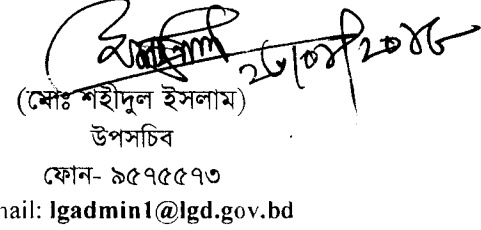 ২৮/০৪/২০১৮
(মোঃ শহীদুল ইসলাম)
উপসচিব
ফোন- ৯৫৭৫৫৭৩
nail: lgadmin1@lgd.gov.bd